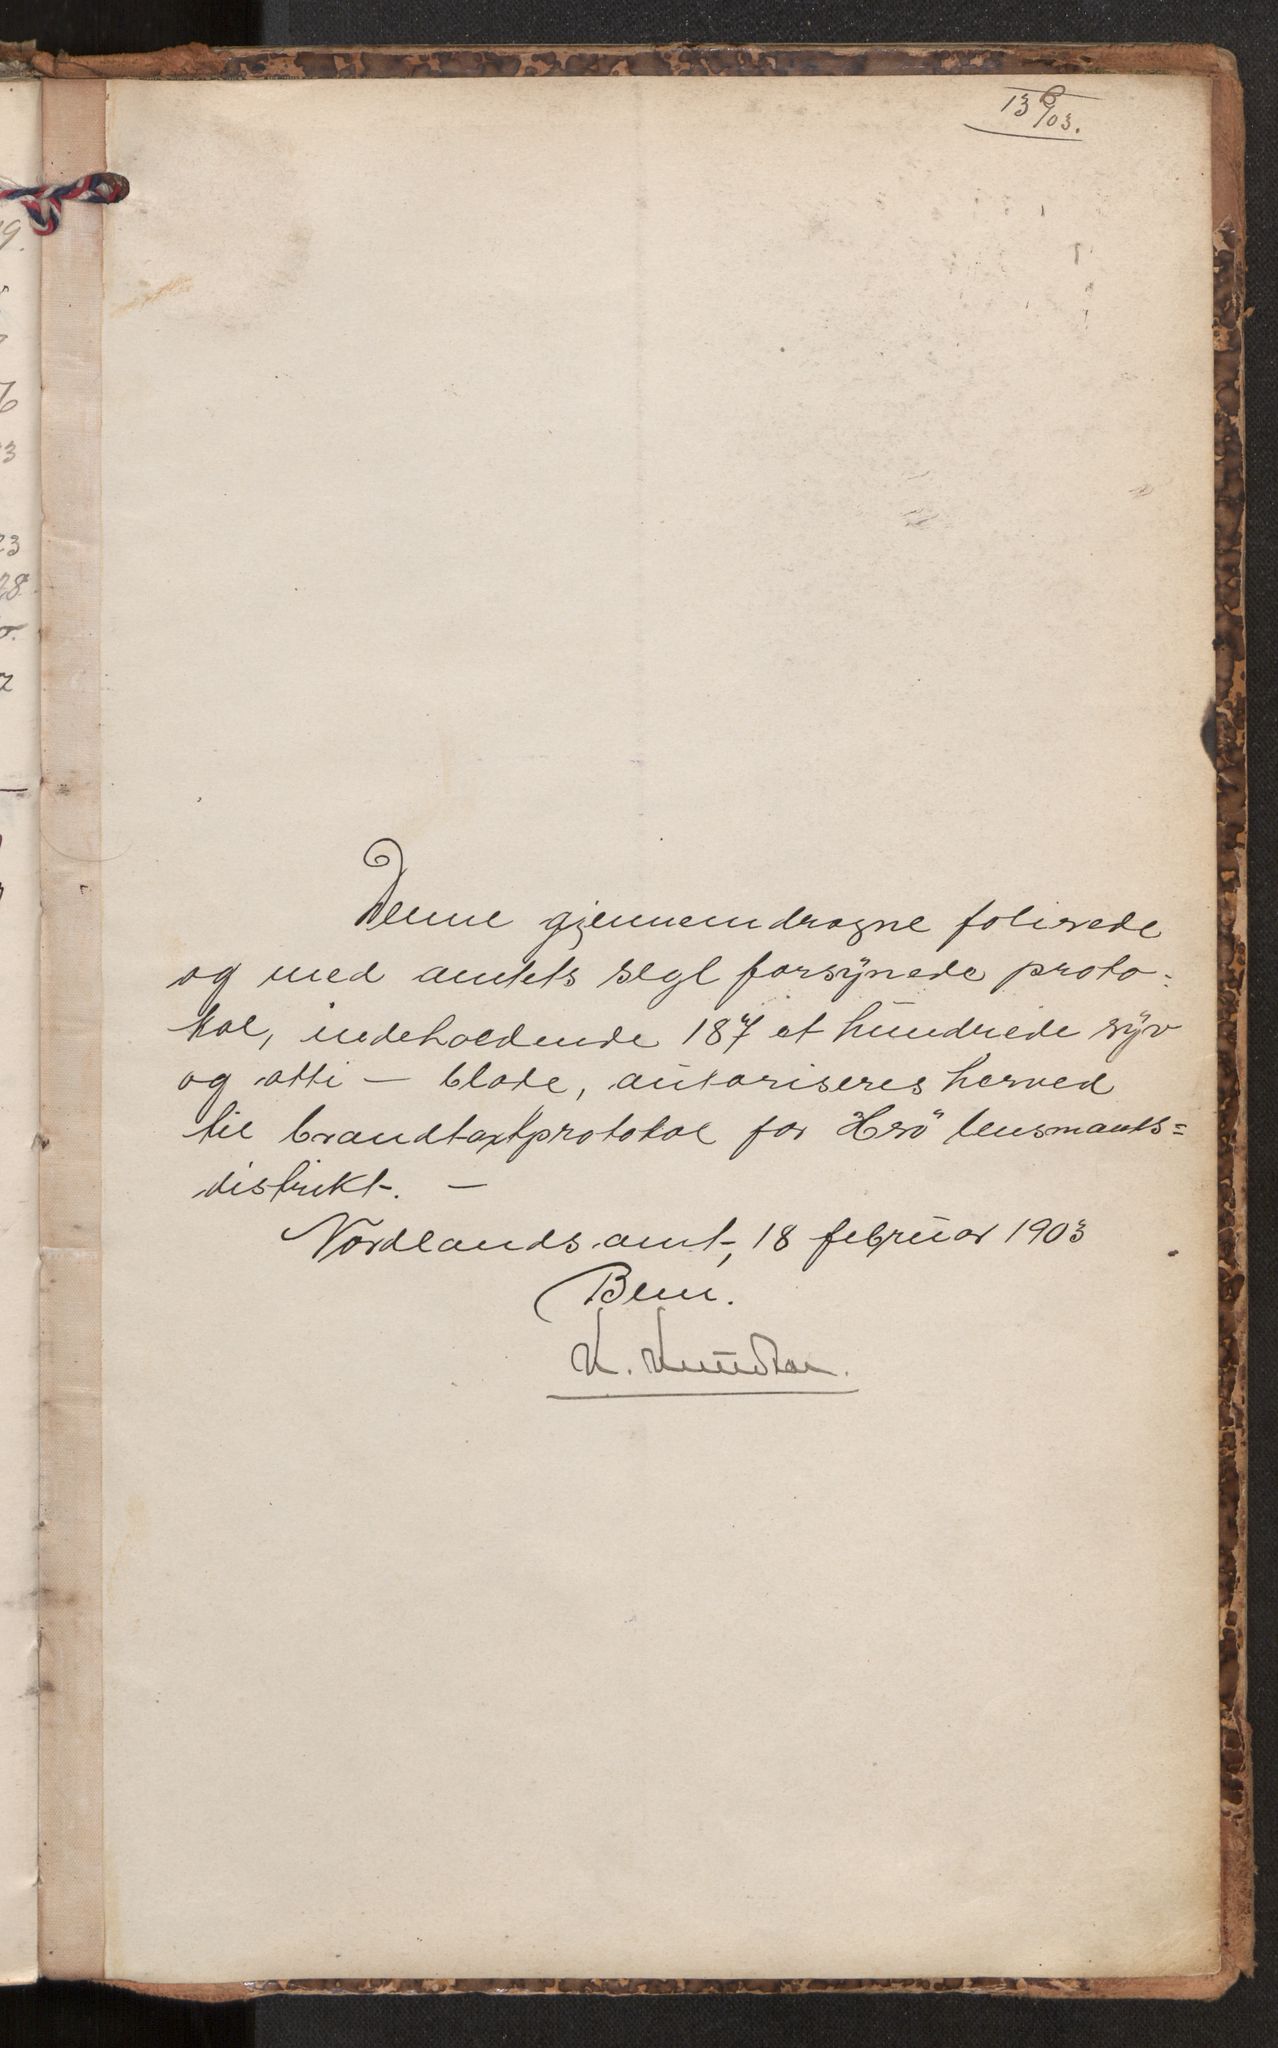 13 B/03.
Denne gjennemdragne folierede
og med amtets segl forsynede proto-
kol, indeholdende 187 et hundrede syv
og otti — blade, autoriseres herved
til brandtaxtprotokol for Herö lensmands=
distrikt. —
Nordlands amt, 18 februar 1903
K. Knudsen.
19.
6
3
23
28.
7